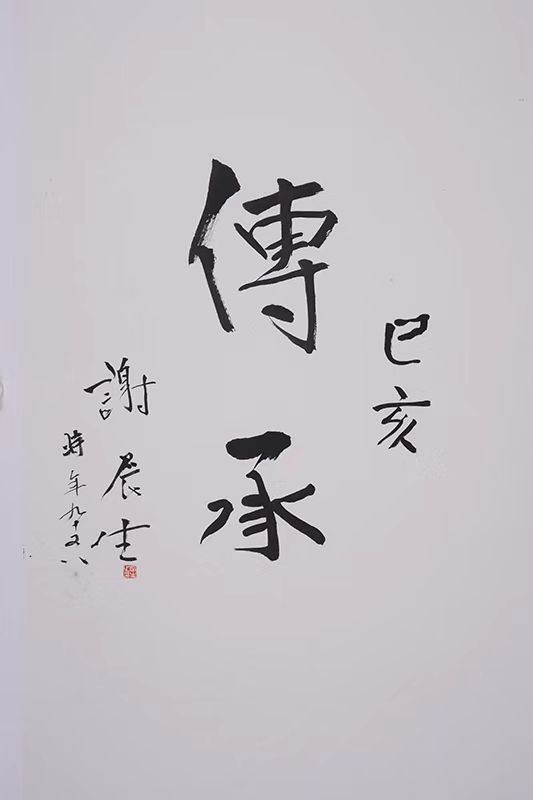 巳亥
傳承
謝辰生
時年九十又八